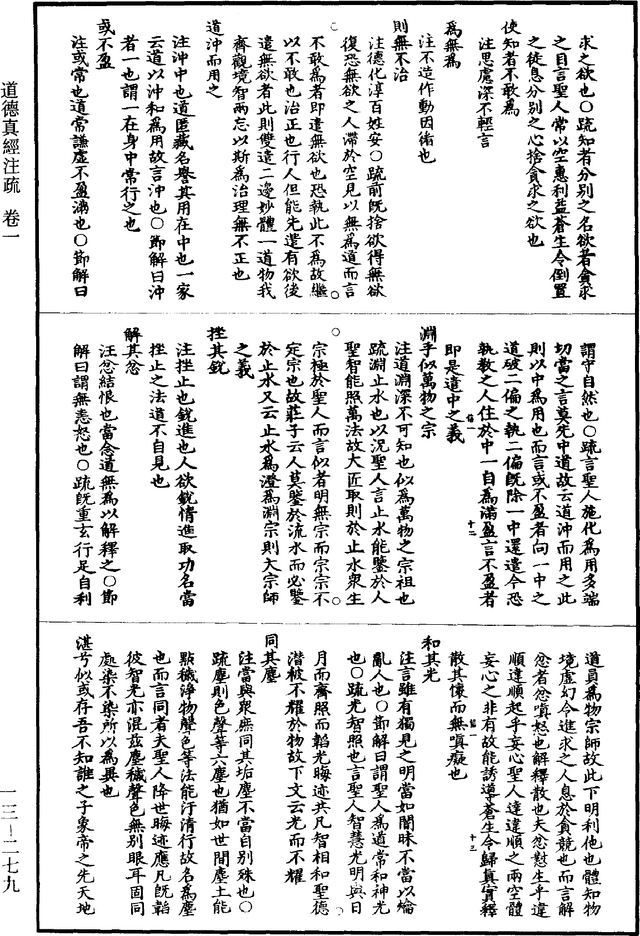 求之欲也〇疏知者分別之名欲者貪求
之目言聖人常以空惠利益蒼生令倒置
之徒息分別之心捨貪求之欲也
使知者不敢為
注思慮深不輕言
為無為
注不造作動因循也
則無不治
注德化淳百姓安〇疏前既捨欲得無欲
復恐無欲之人滯於空見以無為道而言
不敢為者即遣無欲也恐執此不為故繼
以不敢也治正也行人但能先遣有欲後
遣無欲者此則雙遣二邊妙體一道物我
齊觀境智兩忘以斯為治理無不正也
道沖而用之
注沖中也道匿藏名譽其用在中也一家
云道以沖和為用故言沖也〇節解曰沖
者一也謂一在身中常行之也
或不盈
注或常也道常謙虛不盈滿也〇節解曰
謂守自然也〇疏言聖人施化為用多端
切當之言莫先中道故云道沖而用之此
則以中為用也而言或不盈者向一中之
道破二偏之執二偏既除一中還遣今恐
執教之人住於中一自為滿盈言不盈者
即是遣中之義
淵乎似萬物之宗
注道淵深不可知也似為萬物之宗祖也
疏淵止水也以況聖人言止水能鑒於人
聖智能照萬法故大匠取則於止水衆生
宗極於聖人而言似者明無宗而宗宗不
定宗也故莊子云人莫鑒於流水而必鑒
於止水又云止水為澄為淵宗則大宗師
之義
挫其銳
注挫止也銳進也人欲銳情進取功名當
挫止之法道不自見也
解其忿
注忿結恨也當念道無為以解釋之〇節
解曰謂無恚怒也〇疏既重玄行足自利
道員為物宗師故此下明利他也體知物
境虛幻令進求之人息於貪競也而言解
忿者忿嗔怒也解釋散也夫忿對生乎違
順違順起乎妄心聖人達違順之兩空體
妄心之非有故能誘導蒼生令歸真實釋
散其懷而無嗔癡也
和其光
注言雖有獨見之明當如闇昧不當以
亂人也〇節解曰謂聖人為道常和神光
也〇疏光智照也言聖人智慧光明與日
月而齊照而韜光晦迹共凡智相和聖德
潛被不耀於物故下文云光而不耀
同其塵
注當與衆庶同其垢塵不當自別殊也〇
疏塵則色聲等六塵也猶如世間塵土能
點穢淨物聲色等法能汙清行故名為塵
也而言同者夫聖人降世晦迹應凡既韜
彼智光亦混茲塵穢聲色無別眼耳固同
處染不染所以為異也
湛兮似或存吾不知誰之子象帝之先天地
道德真經注疏 卷一
一三—二七九